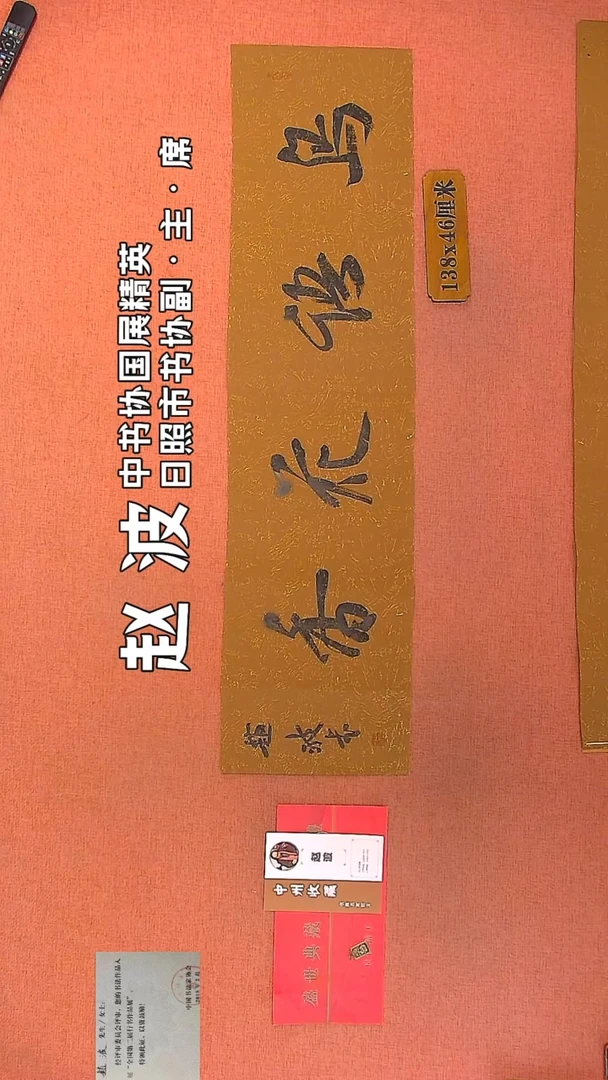 赵波
中书协国展精英
日照市书协副·主·席
鸟语花香
趙波书
138x46厘米
赵波
中州收藏
盛世典藏
赵波 先生/女士:
经评审委员会评审,您的书法作品入
展“全国第二届行书作品展”,
特颁此证,以资鼓励!
中国书法家协会